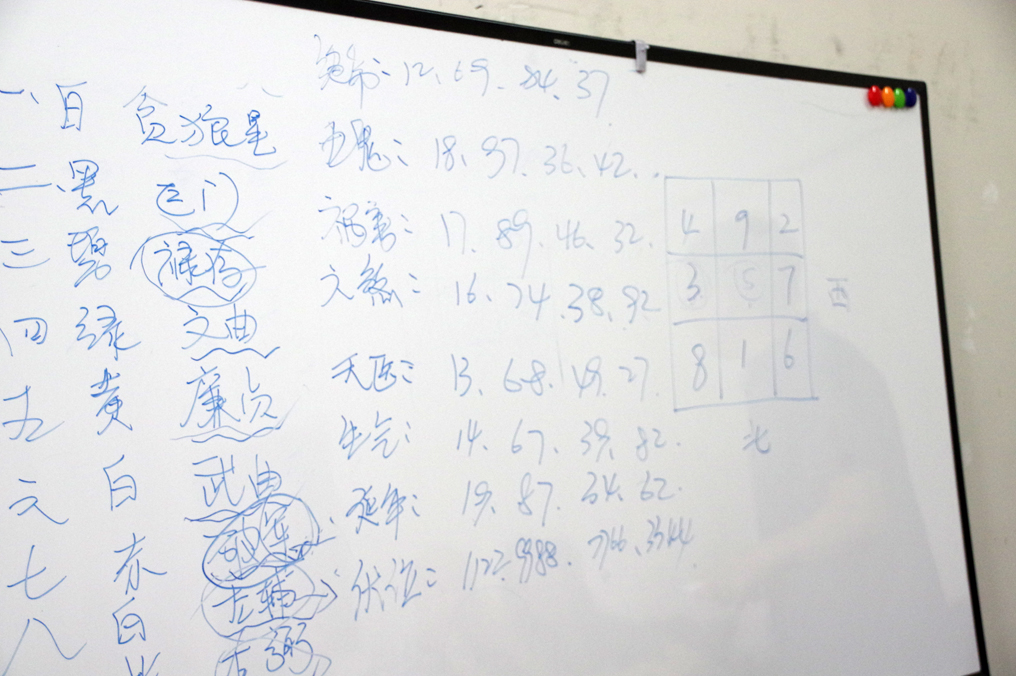 一、白 贪狼星
二、黑 巨门
三 碧 禄存
四 绿 文曲
五 黄 廉贞
六 白 武曲
七 赤 破军
八 白 左辅
右弼
绝命:12、69、84、37
五鬼:18、97、36、42..
祸害:17、89、46、32.
六煞:16、74、38、92
天医:13、68、49、27.
生气:14、67、39、82.
延年:19、87、34、62.
伏位:1122、9988、7766、3344
4 9 2
3 5 7 西
8 1 6
北